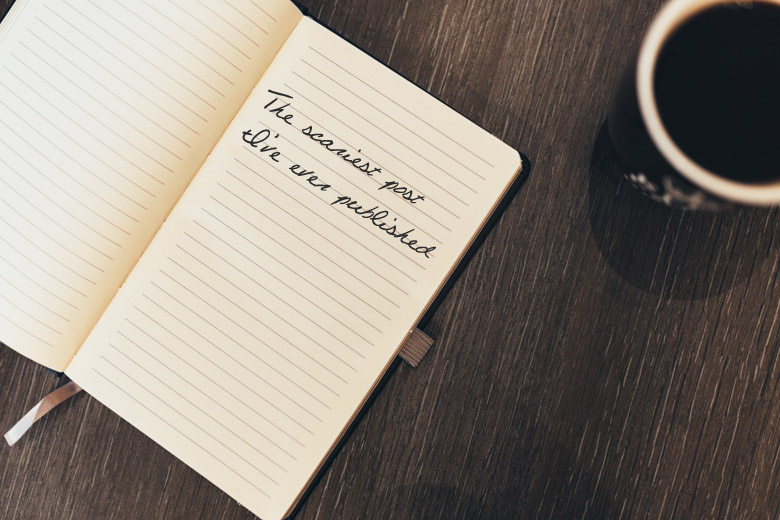 The scariest post
I've ever published